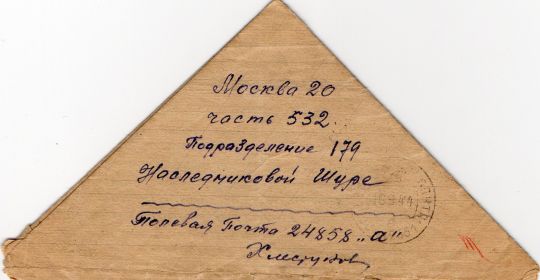 Москва 20
часть 532
Подразделение 179
Наследниковой Шуре
Полевая Почта 24858 „а"